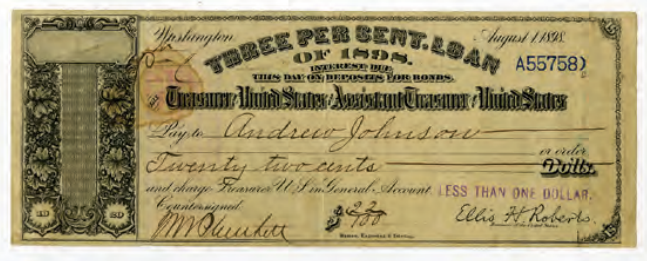 Washington August 1 1898.
THREE PER CENT. LOAN
OF 1898.
INTEREST DUE
THIS DAY ON DEPOSITS FOR BONDS.
A55758
Treasurer United States or Assistant Treasurer United States
Pay to Andrew Johnson
or order
Twenty two cents Dolls.
and charge Treasurer U.S. in General Account. LESS THAN ONE DOLLAR.
Countersigned
$ 22/100
Ellis H Roberts.